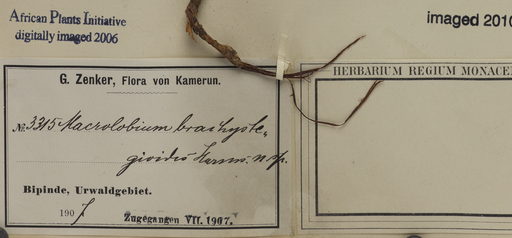 African Plants Initiative
digitally imaged 2006
imaged 2010
G. Zenker, Flora von Kamerun.
HERBARIUM REGIUM MONACE
No. 3315 Macrolobium brachyste,
gioides Harms. n. sp.
Bipinde, Urwaldgebiet.
1907 Zugegangen VII. 1907.